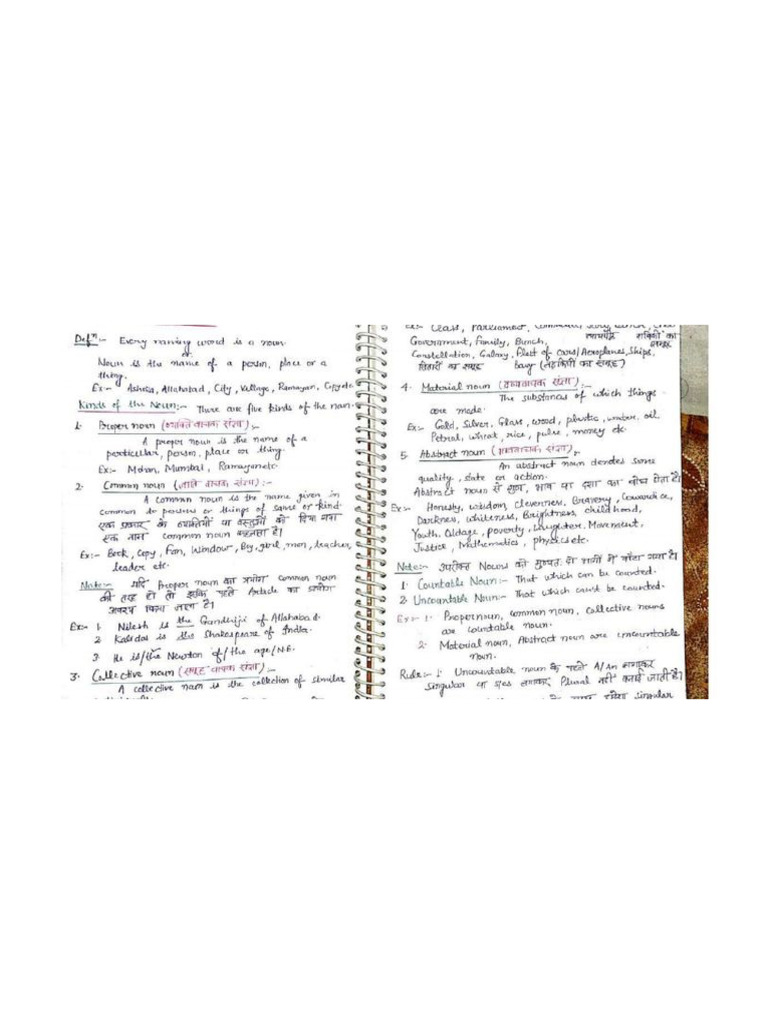 Defⁿ:- Every naming word is a noun
or
Noun is the name of a person, place or a
thing.
Ex:- Ashoka, Allahabad, City, Village, Ramayan, Coyote
Kinds of the Noun:- There are five kinds of the noun.
1. Proper noun (व्यक्ति वाचक संज्ञा) :-
A proper noun is the name of a
particular, person, place or thing.
Ex:- Mohan, Mumbai, Ramayanetc.
2. Common noun (जाति वाचक संज्ञा) :-
A common noun is the name given in
common to persons or things of same or kind.
एक प्रकार के व्यक्तियों या वस्तुओं को दिया गया
एक नाम common noun कहलाता है।
Ex:- Book, Copy, Fan, Window, Boy, girl, men, teacher,
leader etc.
Note:- यदि Proper noun का प्रयोग common noun
की तरह हो तो इसके पहले Article का प्रयोग
अवश्य किया जाता है।
Ex:- 1. Nilesh is the Gandhiji of Allahabad.
2 Kalidas is the Shakespeare of India.
3 He is/the Newton of/the age/N6.
3. Collective noun (समूह वाचक संज्ञा) :-
A collective noun is the collection of similar
Ex:- Class, Parliament,
Government, Family, Bunch,
Constellation, Galaxy, Fleet of Cars/Aeroplanes, Ships,
सितारों का समूह bavy (लड़कियों का समूह)
4. Material noun (द्रव्यवाचक संज्ञा) :-
The substances of which things
are made.
Ex:- Gold, Silver, Glass, wood, plastic, water, oil,
Petrol, wheat, rice, pulse, money etc.
5. Abstract noun (भाववाचक संज्ञा) :-
An abstract noun denotes some
quality, state or action.
Abstract noun से गुण, भाव या दशा का बोध होता है।
Ex:- Honesty, wisdom, cleverness, Bravery, Cowardice,
Darkness, whiteness, Brightness, childhood,
Youth, Oldage, poverty, Laughter, Movement,
Justice, Mathematics, physics etc.
Note:- उपरोक्त Nouns को मुख्यतः दो भागों में बाँटा गया है।
1. Countable Noun:- That which can be counted.
2. Uncountable Noun:- That which can't be counted.
Ex:- 1. Proper noun, common noun, collective nouns
are countable noun.
2. Material noun, Abstract noun are uncountable
noun.
Rule:- 1. Uncountable noun के पहले A/An लगाकर
singular या s/es लगाकर Plural नहीं बनाये जाती है।
singular